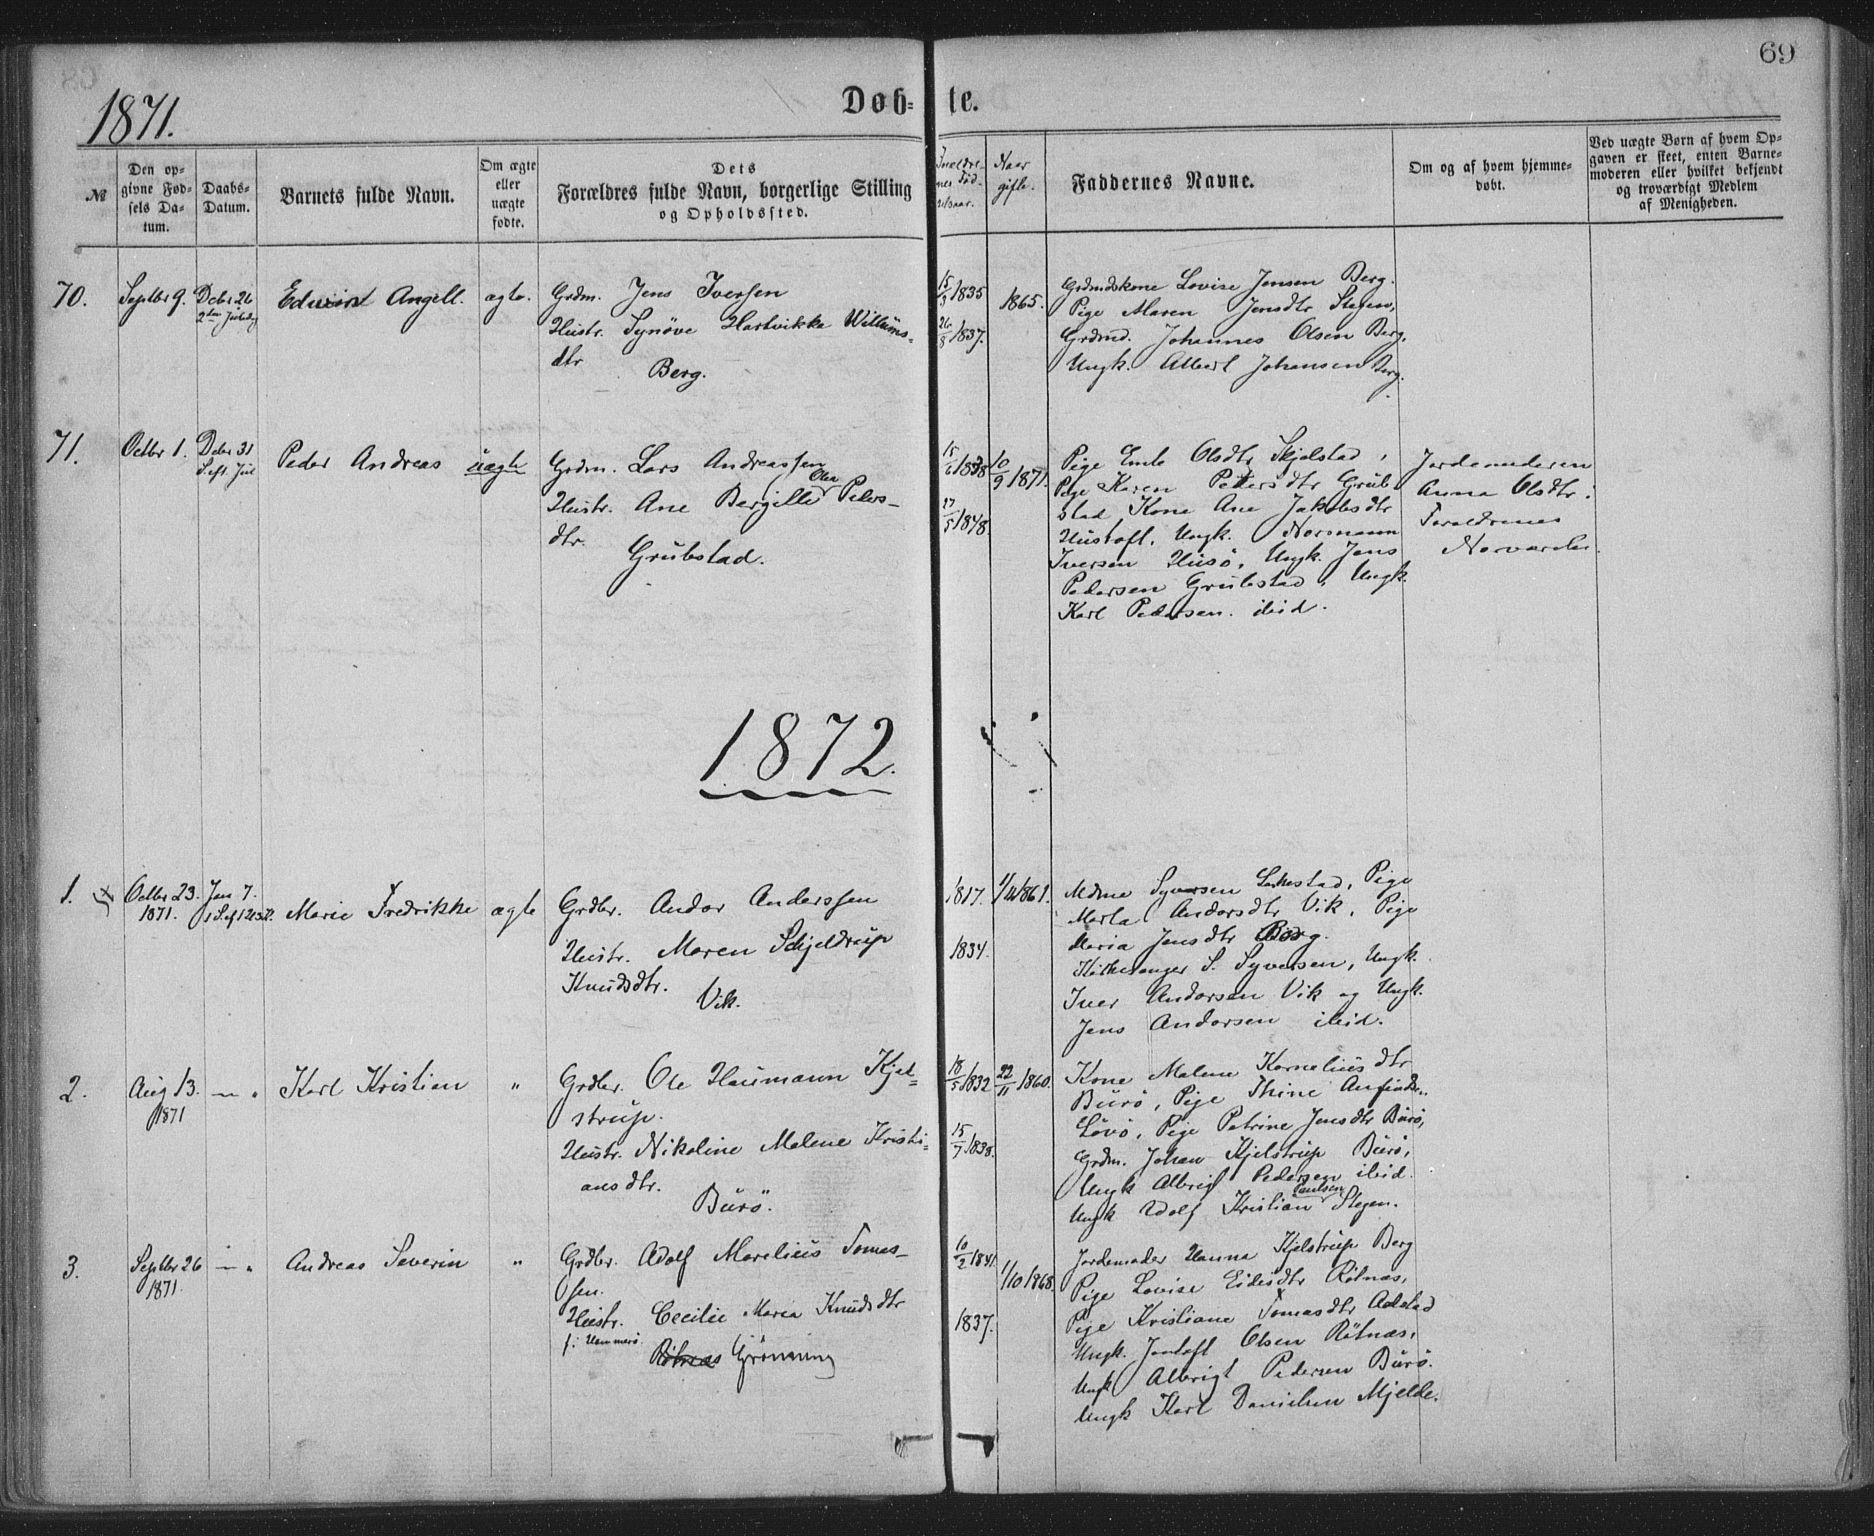 69
1871.
Døb- te.
№
Den op-
givne Fød-
sels Da-
tum.
Daabs-
Datum.
Barnets fulde Navn.
Om ægte
eller
uægte
fødte.
Dets
Forældres fulde Navn, borgerlige Stilling
og Opholdssted.
Naar
gifte.
Faddernes Navne.
Om og af hvem hjemme-
døbt.
Ved uægte Børn af hvem Op-
gaven er skeet, enten Barne-
moderen eller hvilket bekjendt
og troværdigt Medlem
af Menigheden.
70.
Septbr 9.
Dcbr 26
2den Juledg
Edwin Angell.
ægte.
Grdm. Jens Iversen
Hustr. Synøve Hartvikka Willums-
dtr
Berg.
15/3 1835
26/8 1837.
1865.
Grdmdskone Lovise Jensen Berg.
Pige Maren Jensdtr Stegen,
Grdmd. Johannes Olsen Berg,
Ungk. Albert Johansen Berg.
71.
Octbr 1.
Dcbr 31
S. eft. Jul
Peder Andreas
uægte
Grdm. Lars Andreassen
Hustr. Ane Bergitte Olea Peders-
dtr.
Grubstad.
15/6 1838
27/5 1848.
10/9 1871.
Pige Emle Olsdtr Skjelstad,
Pige Karen Pettersdtr Grub-
stad Kone Ane Jakobsdtr
Hustoft, Ungk. Normann
Iversen Husö, Ungk. Jens
Pedersen Grubstad, Ungk.
Karl Pedersen. ibid.
Jordemoderen
Anna Olsdtr i
Foraldrenes
Nærværelse.
1872.
1.
Octbr 23.
1871.
Jan 7.
Marie Fredrikke
ægte
Grdbr. Andor Anderssen
Hustr. Maren Schjeldrup
Knudsdtr.
Vik.
1817.
1834.
1861.
Mdme Syversen Leknestad, Pige
Marta Andorsdtr Vik, Pige
Maria Jensdtr Berg.
Kirkesanger S. Syversen, Ungk.
Iver Andorsen Vik og Ungk.
Jens Andorsen ibid.
2.
Aug 13.
1871
— " .
Karl Kristian
"
Grdbr. Ole Haumann Kjel-
strup.
Hustr. Nikoline Malene Kristi-
ansdtr.
Burö.
18/5 1832
15/7 1838.
22/11 1860.
Kone Malene Korneliusdtr
Burö, Pige Thine Anfindsdtr
Lövö, Pige Petrine Jensdtr Burö,
Grdm. Johan Kjelstrup Burö,
Ungk Albrigt Pedersen ibid.
Ungk Adolf Kristian Paulsen Stegen.
3.
Septbr 26
1871.
— " .
Andreas Severin
"
Grdbr. Adolf Marelius Tomas-
sen.
Hustr. Cecilie Maria Knudsdtr
f: Hammerö.
Rötnæs Grönning
10/2 1841.
1837.
1/10 1868.
Jordemoder Hanna Kjelstrup Berg
Pige Lovise Eidesdtr Rötnæs,
Pige Kristiane Tomasdtr Adstad
Ungk. Jentoft Olsen Rötnæs,
Ungk Albrigt Pedersen Burö.
Ungk Karl Danielsen Mjelde.